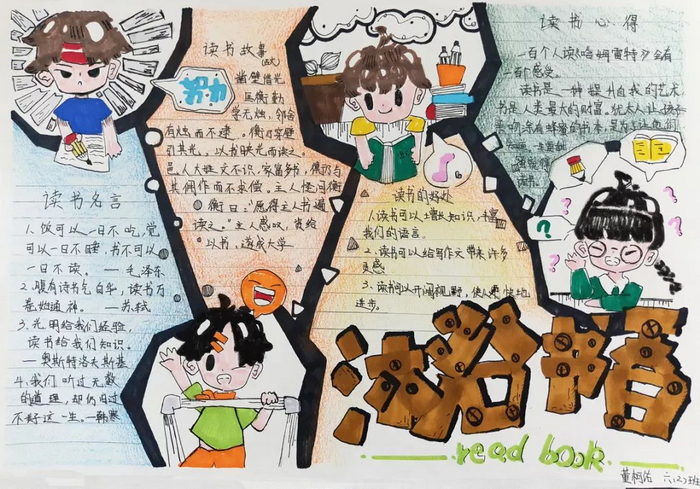 读书故事
(古文)
凿壁借光
匡衡勤
学无烛,邻舍
有烛而不逮。衡乃穿壁
引其光,以书映光而读之。
邑人大姓文不识,家富多书,衡乃与
其佣作而不求偿。主人怪问衡
衡曰:“愿得主人书遍
读之。”主人感叹,资给
以书,遂成大学
努力
读书心得
一百个人读《哈姆雷特》会有
一百个感受。
读书是一种提升自我的艺术
书是人类最大的财富。犹太人让孩子
读书名言
1、饭可以一日不吃,觉
可以一日不睡,书不可以
一日不读。 — 毛泽东
2、腹有诗书气自华,读书万
卷始通神。 — 苏轼
3、光明给我们经验,
读书给我们知识。
— 奥斯特洛夫斯基
4、我们听过无数
的道理,却仍旧过
不好这一生。—韩寒
读书的好处
1、读书可以增长知识,丰富
我们的语言
2、读书可以给写作文带来许多
灵感
3、读书可以开阔视野,使人
进步。
read book
董栩佑 六(2)班